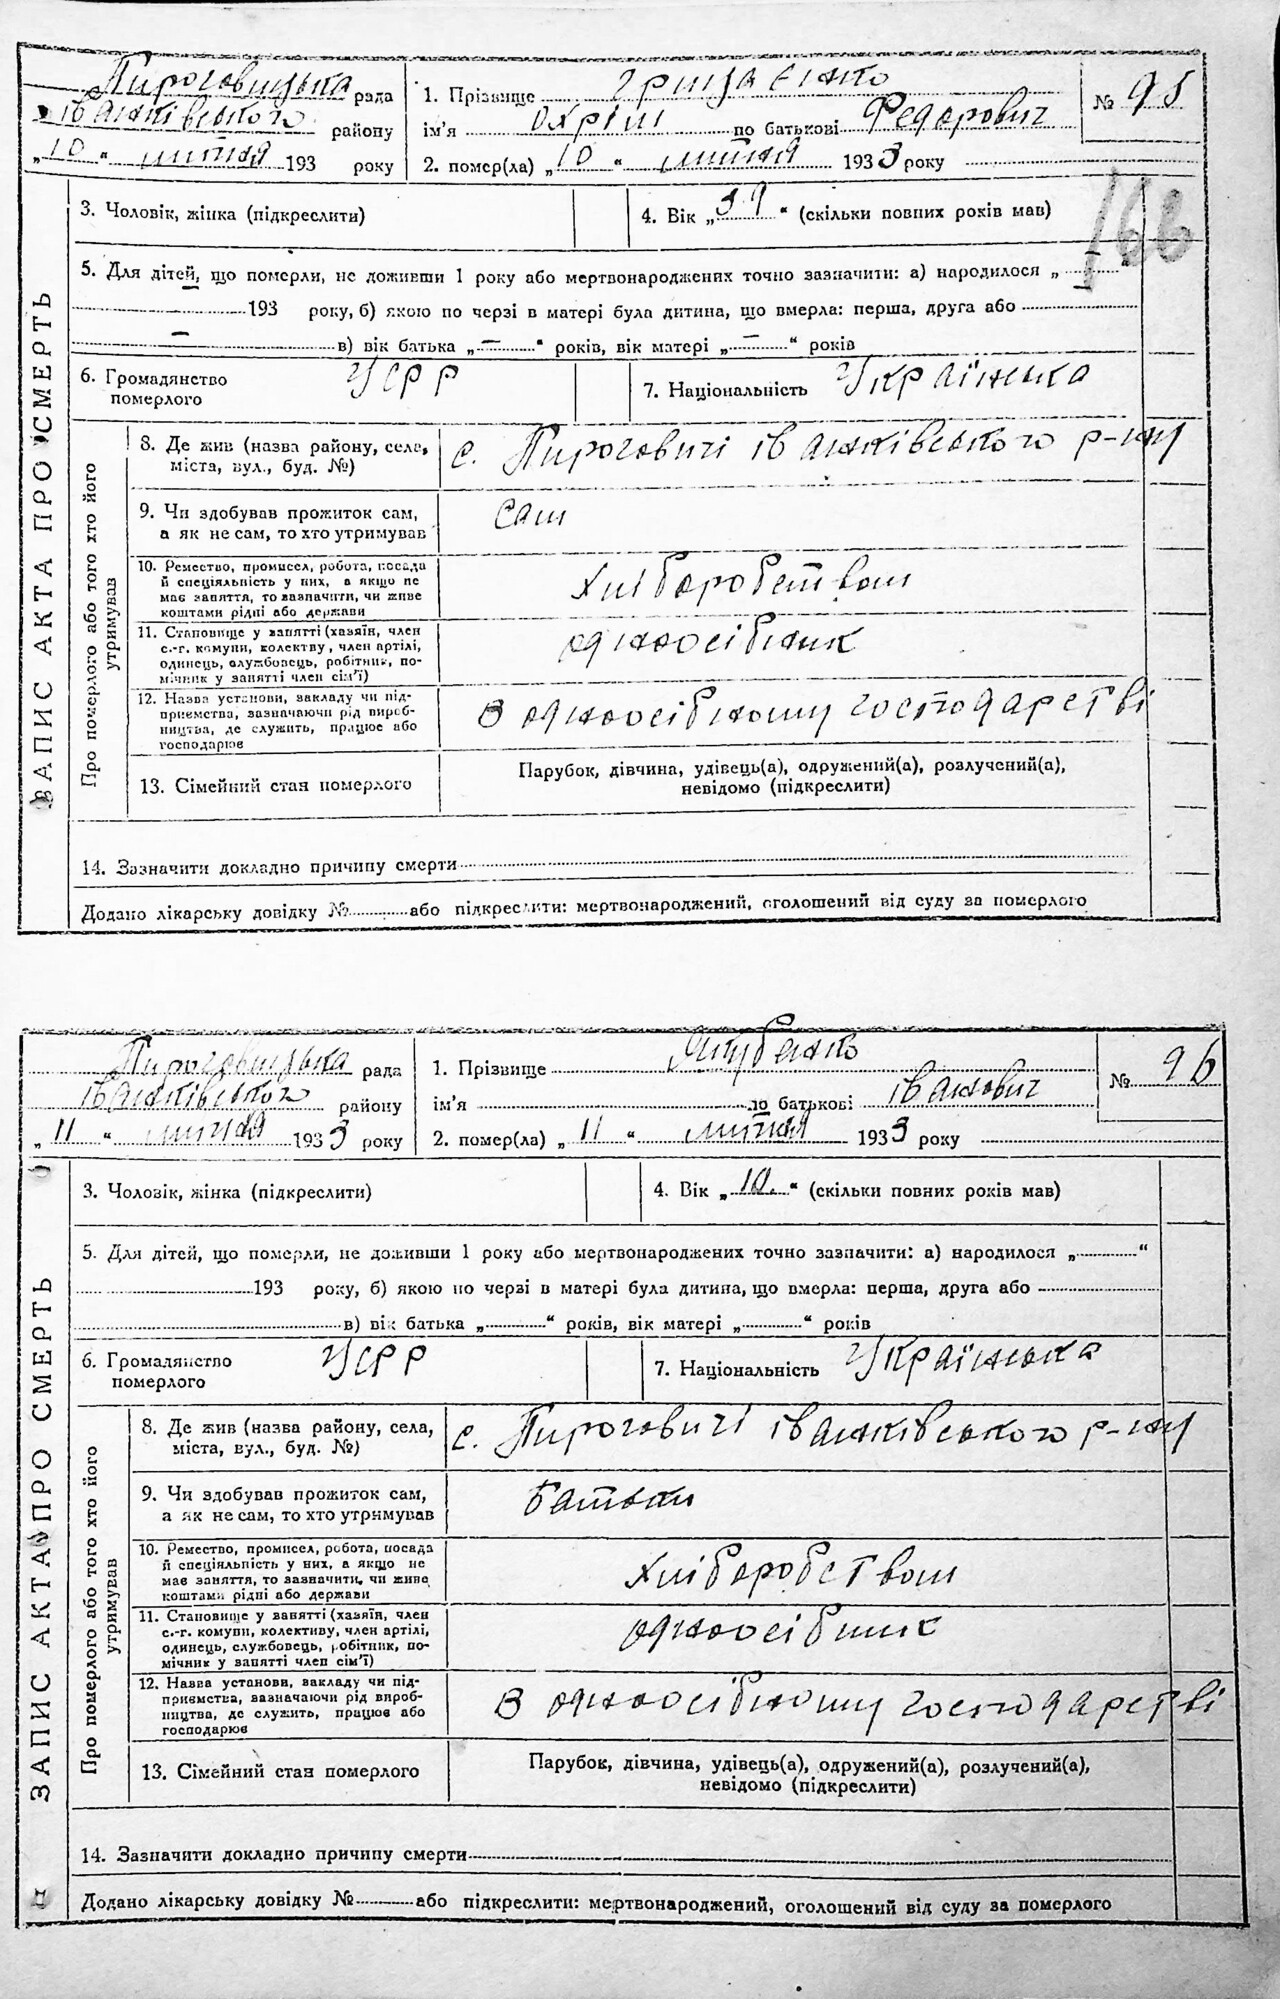 Пироговицька рада
Іванківського району
„10“ липня 193 року
1. Прізвище Грищенко
ім'я Охрім по батькові Федорович
2. помер(ла) „10“ липня 1933 року
№ 95
166
3. Чоловік, жінка (підкреслити)
4. Вік „39“ (скільки повних рохів мав)
5. Для дітей, що померли, не доживши 1 року або мертвонароджених точно зазначити: а) народилося „ — “
193 року, б) якою по черзі в матері була дитина, що вмерла: перша, друга або
— в) вік батька „ — “ років, вік матері „ — “ років
6. Громадянство
померлого
УСРР
7. Національність Українська
ЗАПИС АКТА ПРО СМЕРТЬ
Про померлого або того хто його
утримував
8. Де жив (назва району, села,
міста, вул., буд. №)
с. Пироговичі Іванківського р-ну
9. Чи здобував прожиток сам,
а як не сам, то хто утримував
сам
10. Ремество, промисел, робота, посада
й спеціяльність у них, а якщо не
має заняття, то зазначити, чи живе
коштами рідні або держави
Хліборобством
11. Становище у занятті (хазяїн, член
с.-г. комуни, колективу, член артілі,
одинець, службовець, робітник, по-
мічник у занятті член сім'ї)
одноосібник
12. Назва установи, закладу чи під-
приемства, зазначаючи рід вироб-
ництва, де служить, працює або
господарює
в одноосібному господарстві
13. Сімейний стан померлого
Парубок, дівчина, удівець(а), одружений(а), розлучений(а),
невідомо (підкреслити)
14. Зазначити докладно причину смерти
Додано лікарську довідку № або підкреслити: мертвонароджений, оголошений від суду за померлого
Пироговицька рада
Іванківського району
„11“ липня 1933 року
1. Прізвище
ім'я по батькові Іванович
2. помер(ла) „11“ липня 1933 року
№ 96
3. Чоловік, жінка (підкреслити)
4. Вік „10.“ (скільки повних років мав)
5. Для дітей, що померли, не доживши 1 року або мертвонароджених точно зазначити: а) народилося „ “
193 року, б) якою по черзі в матері була дитина, що вмерла: перша, друга або
в) вік батька „ “ років, вік матері „ “ років
6. Громадянство
померлого
УСРР
7. Національність Українська
ЗАПИС АКТА ПРО СМЕРТЬ
Про померлого або того хто його
утримував
8. Де жив (назва району, села,
міста, вул., буд. №)
с. Пироговичі Іванківського р-ну
9. Чи здобував прожиток сам,
а як не сам, то хто утримував
батьки
10. Ремество, промисел, робота, посада
й спеціяльність у них, а якщо не
має заняття, то зазначити, чи живе
коштами рідні або держави
Хліборобством
11. Становище у занятті (хазяїн, член
с.-г. комуни, колективу, член артілі,
одинець, службовець, робітник, по-
мічник у занятті член сім'ї)
одноосібник
12. Назва установи, закладу чи під-
приемства, зазначаючи рід вироб-
ництва, де служить, працює або
господарює
в одноосібному господарстві
13. Сімейний стан померлого
Парубок, дівчина, удівець(а), одружений(а), розлучений(а),
невідомо (підкреслити)
14. Зазначити докладно причину смерти
Додано лікарську довідку № або підкреслити: мертвонароджений, оголошений від суду за померлого